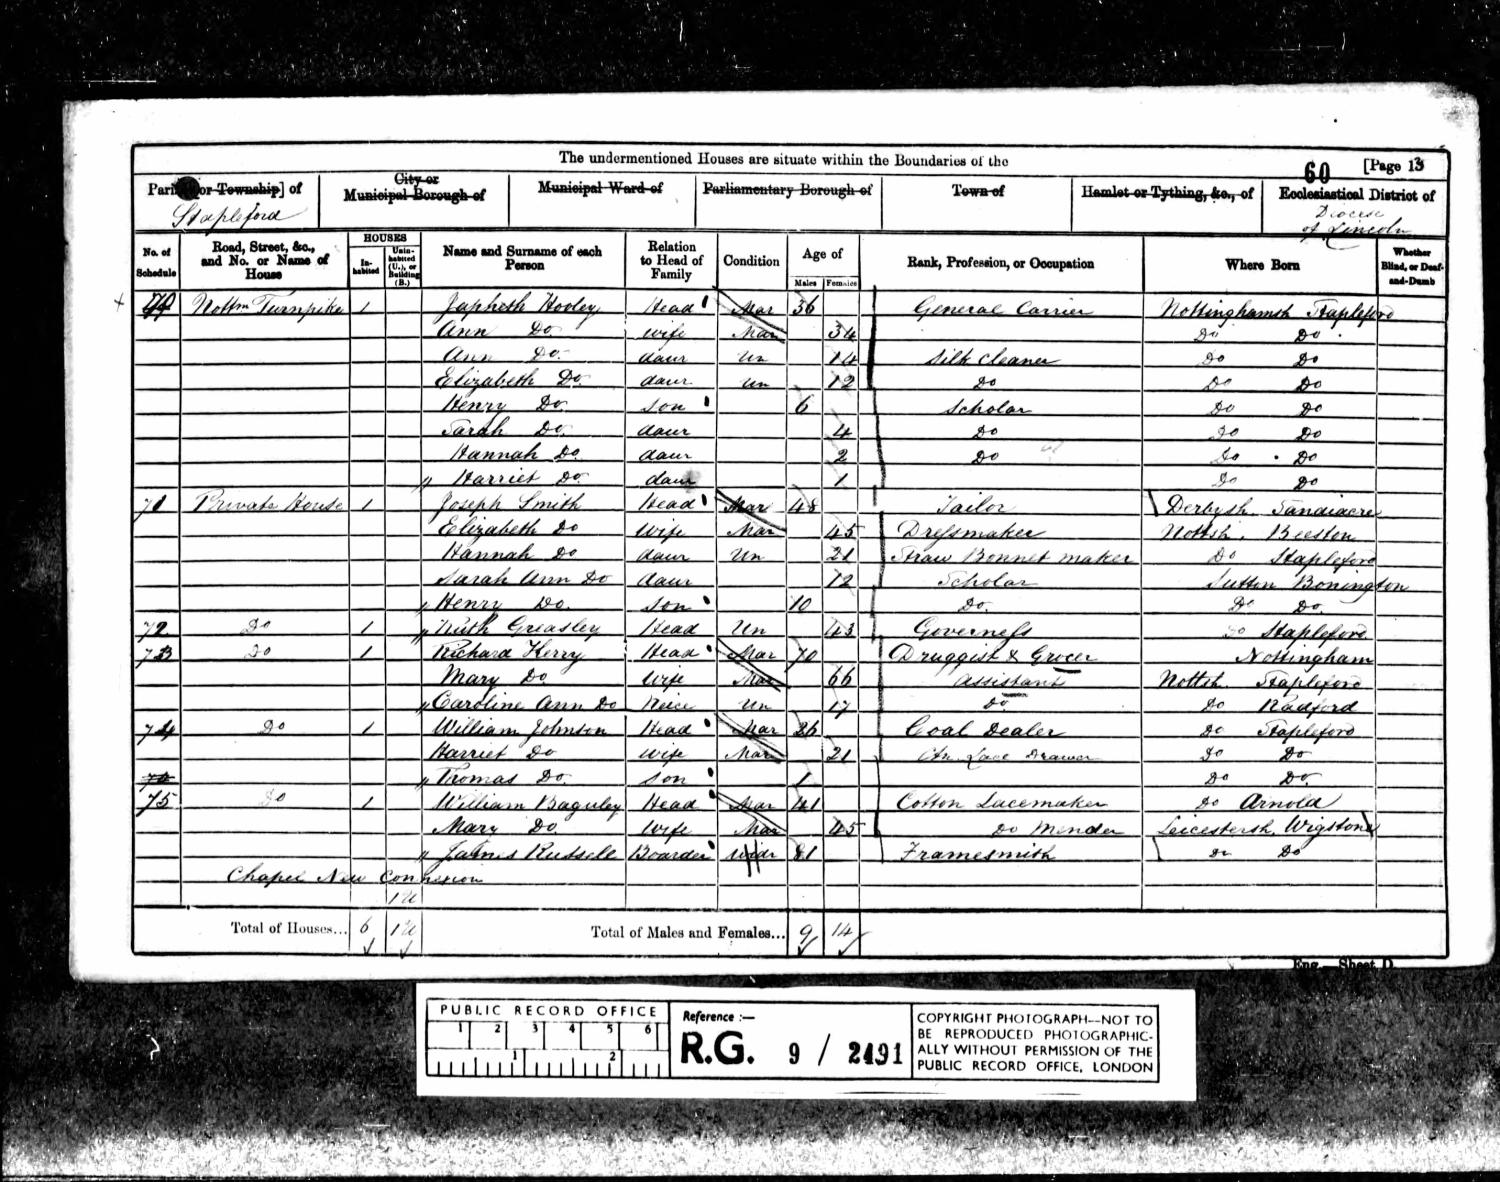 The undermentioned Houses are situate within the Boundaries of the
60 [Page 13
Parish [or Township] of City or Municipal Borough of Municipal Ward of Parliamentary Borough of Town of Hamlet or Tything, &c., of Ecclesiastical District of
Stapleford Diocese of Lincoln
No. of Schedule Road, Street, &c., and No. or Name of House HOUSES In-habited Unin-habited (U.), or Building (B.) Name and Surname of each Person Relation to Head of Family Condition Age of Males Females Rank, Profession, or Occupation Where Born Whether Blind, or Deaf-and-Dumb
70 Nottm Turnpike 1 Japheth Hooley Head Mar 36 General Carrier Nottinghamsh Stapleford
Ann Do wife Mar 34 Do Do
Ann Do daur Un 14 Silk Cleaner Do Do
Elizabeth Do daur Un 12 Do Do Do
Henry Do son 6 Scholar Do Do
Sarah Do daur 4 Do Do Do
Hannah Do daur 2 Do Do Do
Harriet Do daur 1 Do Do
71 Private House 1 Joseph Smith Head Mar 48 Tailor Derbysh Sandiacre
Elizabeth Do Wife Mar 45 Dressmaker Nottsh. Beeston
Hannah Do daur Un 21 Straw Bonnet maker Do Stapleford
Sarah Ann Do daur 12 Scholar Sutton Bonington
Henry Do. son 10 Do. Do Do.
72 Do 1 Ruth Greasley Head Un 43 Governess Do Stapleford
73 Do 1 Richard Kerry Head Mar 70 Druggist & Grocer Nottingham
Mary Do wife Mar 66 Assistant Nottsh. Stapleford
Caroline Ann Do Neice Un 17 Do Do Radford
74 Do 1 William Johnson Head Mar 26 Coal Dealer Do Stapleford
Harriet Do wife Mar 21 Lace Drawer Do Do
Thomas Do son 1 Do Do
75 Do 1 William Baguley Head Mar 41 Cotton Lacemaker Do Arnold
Mary Do Wife Mar 45 Do Mender Leicestersh. Wigstone
James Russell Boarder Widr 81 Framesmith Do Do
Chapel New Connexion
1U
Total of Houses... 6 1U Total of Males and Females... 9 14
Eng.—Sheet D.
PUBLIC RECORD OFFICE
1 2 3 4 5 6
1 2
Reference :—
R.G. 9 / 2491
COPYRIGHT PHOTOGRAPH—NOT TO
BE REPRODUCED PHOTOGRAPHIC-
ALLY WITHOUT PERMISSION OF THE
PUBLIC RECORD OFFICE, LONDON